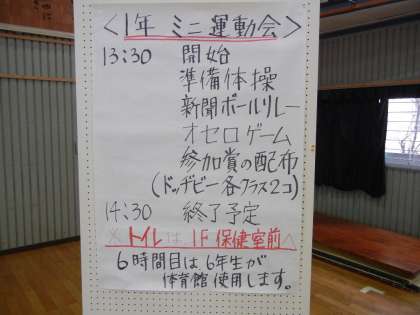 <1年 ミニ運動会>
13:30 開始
準備体操
新聞ボールリレー
オセロゲーム
参加賞の配布
(ドッヂビー各クラス2コ)
14:30 終了予定
※トイレは1F保健室前
6時間目は6年生が
体育館使用します。